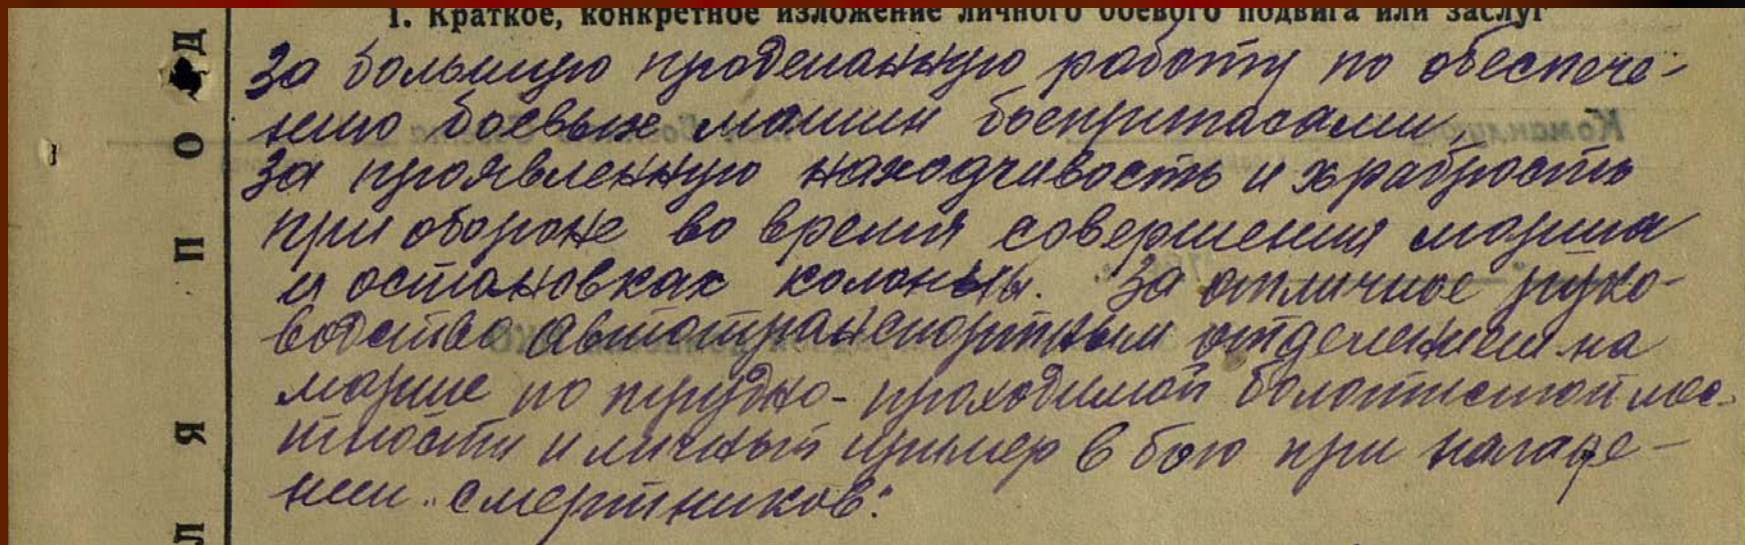 1. Краткое, конкретное изложение личного боевого подвига или заслуг
За большую проделанную работу по обеспече-
нию боевых машин боеприпасами,
За проявленную находчивость и храбрость
при обороне во время совершения марша
и остановках колонны. За отличное руко-
водство автотранспортным отделением на
марше по трудно-проходимой болотистой мес-
тности и личный пример в бою при нападе-
нии "смертников".
Д
О
П
Я
Л